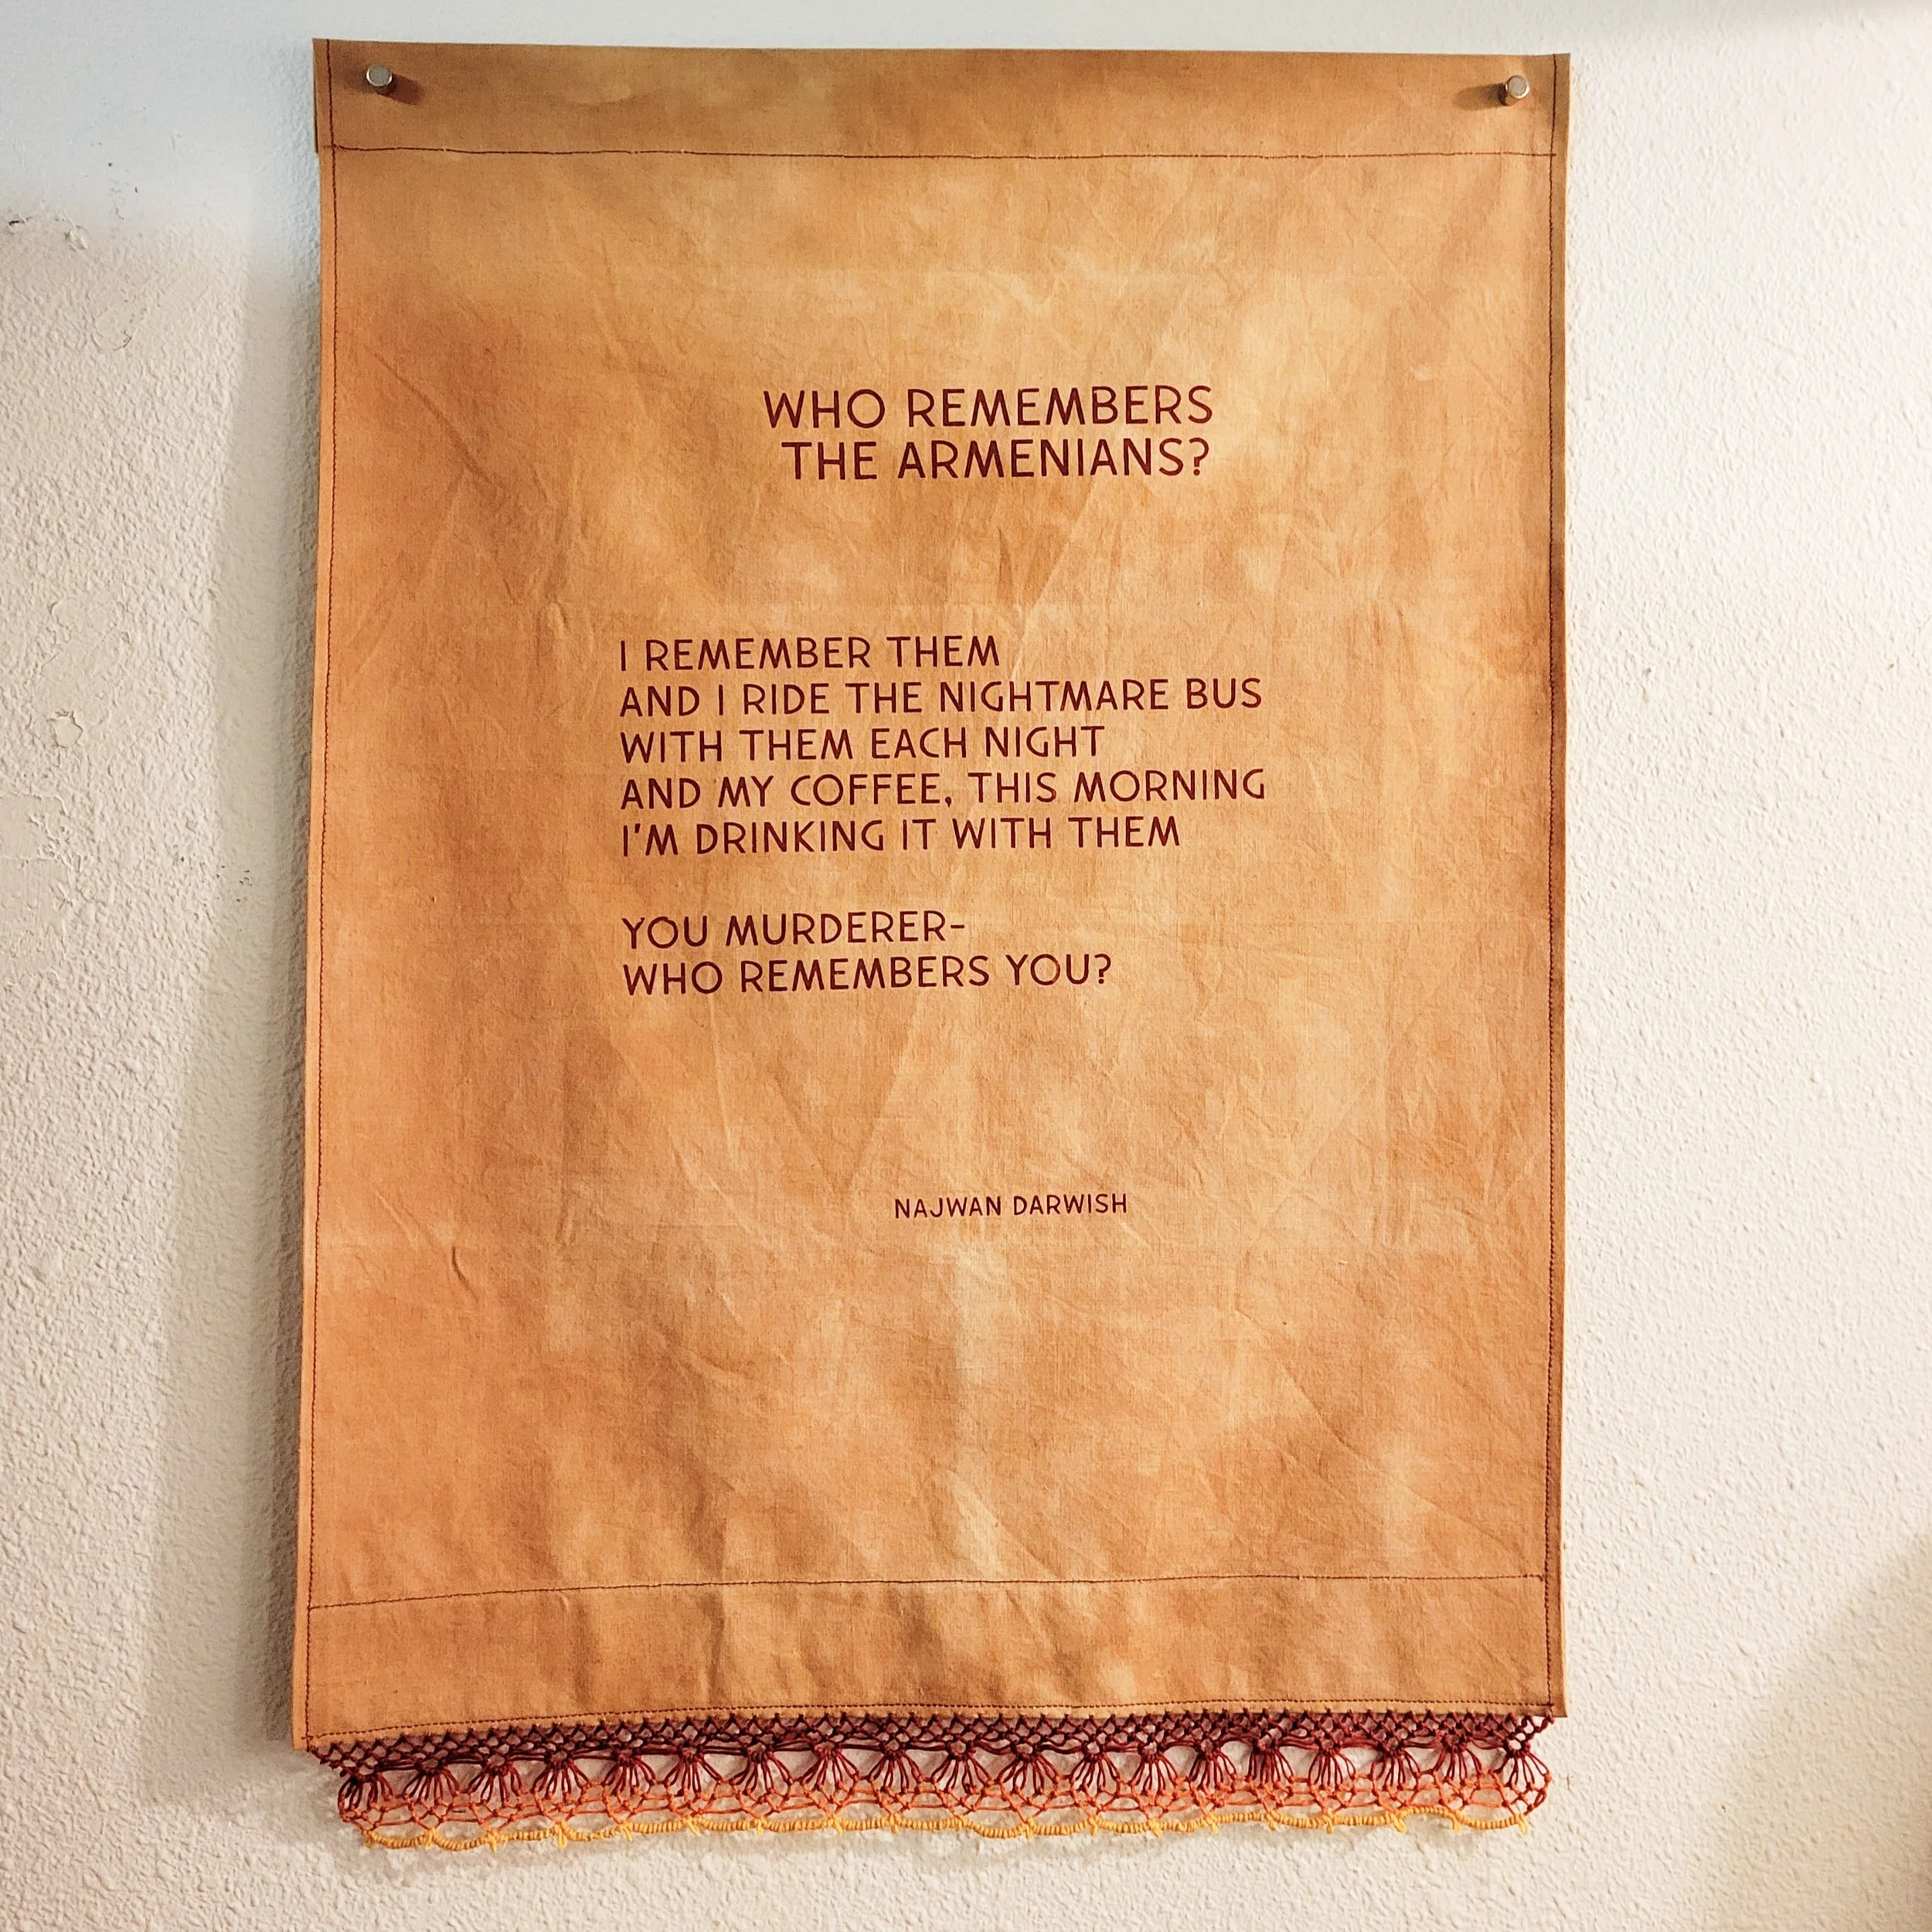 WHO REMEMBERS
THE ARMENIANS?
I REMEMBER THEM
AND I RIDE THE NIGHTMARE BUS
WITH THEM EACH NIGHT
AND MY COFFEE, THIS MORNING
I'M DRINKING IT WITH THEM
YOU MURDERER-
WHO REMEMBERS YOU?
NAJWAN DARWISH